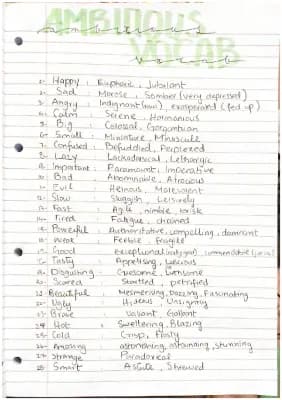 AMBITIOUS
VOCAB
vocab
1- Happy : Euphoric, Jubilant
2- Sad : Morose, Somber (very depressed)
3- Angry : Indignant, exasperated (fed up)
4- Calm : Serene, Harmonious
5- Big : Colossal, Gargantuan
6- Small : Miniature, Minuscule
7- Confused : Befuddled, Perplexed
8- Lazy : Lackadaisical, Lethargic
9- Important : Paramount, Imperative
10- Bad : Abominable, Atrocious
11- Evil : Heinous, Malevolent
12- Slow : Sluggish, Leisurely
13- Fast : Agile, nimble, brisk
14- Tired : Fatigue, drained
15- Powerful : Authoritative, compelling, dominant
16- Weak : Feeble, Fragile
17- Good : exceptional commendable
18- Tasty : Appetising, Luscious
19- Disgusting : Gruesome, Loathsome
20- Scared : Startled petrified
21- Beautiful : Mesmerising, Dazzling, Fascinating
22- Ugly : Hideous, Unsightly
23- Brave : Valiant, Gallant
24- Hot : Sweltering, Blazing
25- Cold : Crisp, Frosty
26- Amazing : astonishing, astounding, stunning
27- Strange : Paradoxical
28- Smart : Astute, Shrewd